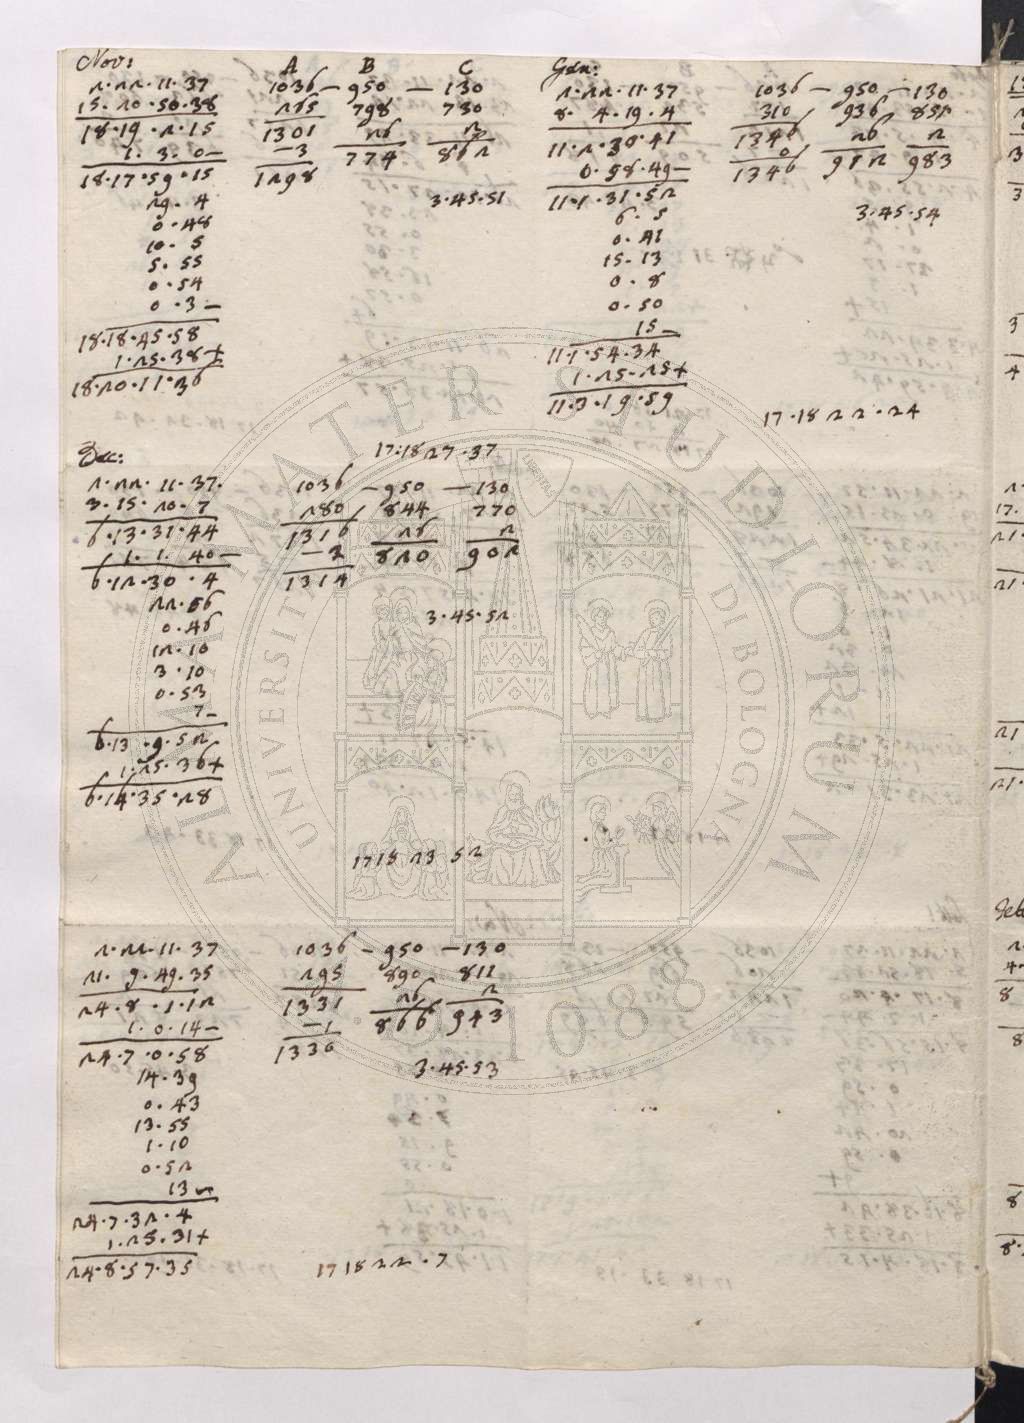 Nov: A B C
2·22·11·37 1036 – 950 – 130
15·20·50·38 265 798 730
18·19·2·15 1301 26 2
1·3·0– –3 774 862
18·17·59·15 1298
29·4 3·45·51
0·48
10·5
5·55
0·54
0·3–
18·18·45·58
1·25·38+
18·20·11·36
17·18 27·37
Gen:
2·22·11·37 1036 – 950 – 130
8·4·19·4 310 936 851
11·2·30·41 1346 26 2
0·58·49– 0 912 983
11·1·31·52 1346
6·5 3·45·54
0·41
15·13
0·8
0·50
15–
11·1·54·34
1·25·25+
11·3·19·59
17·18 22·24
Dec:
2·22·11·37· 1036 – 950 – 130
3·15·20·7 280 844 770
6·13·31·44 1316 26 2
1·1·40– –2 820 902
6·12·30·4 1314
22·56 3·45·52
0·46
12·10
3·10
0·53
7–
6·13·9·52
1·25·36+
6·14·35·28
17 18 23 52
2·22·11·37 1036 – 950 – 130
21·9·49·35 295 890 811
24·8·1·12 1331 26 2
1·0·14– –1 866 943
24·7·0·58 1330
14·39 3·45·53
0·43
13·55
1·10
0·52
13–
24·7·32·4
1·25·31+
24·8·57·35
17 18 22·7
ALMA MATER STUDIORUM
UNIVERSITÀ DI BOLOGNA
LIBERTAS
1088